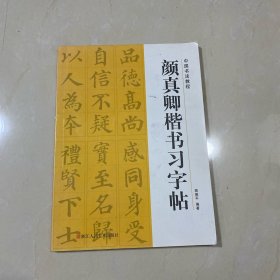 中国书法教程
颜真卿楷书习字帖
品德高尚感同身受
自信不疑實至名歸
以人為本奉禮賢下士